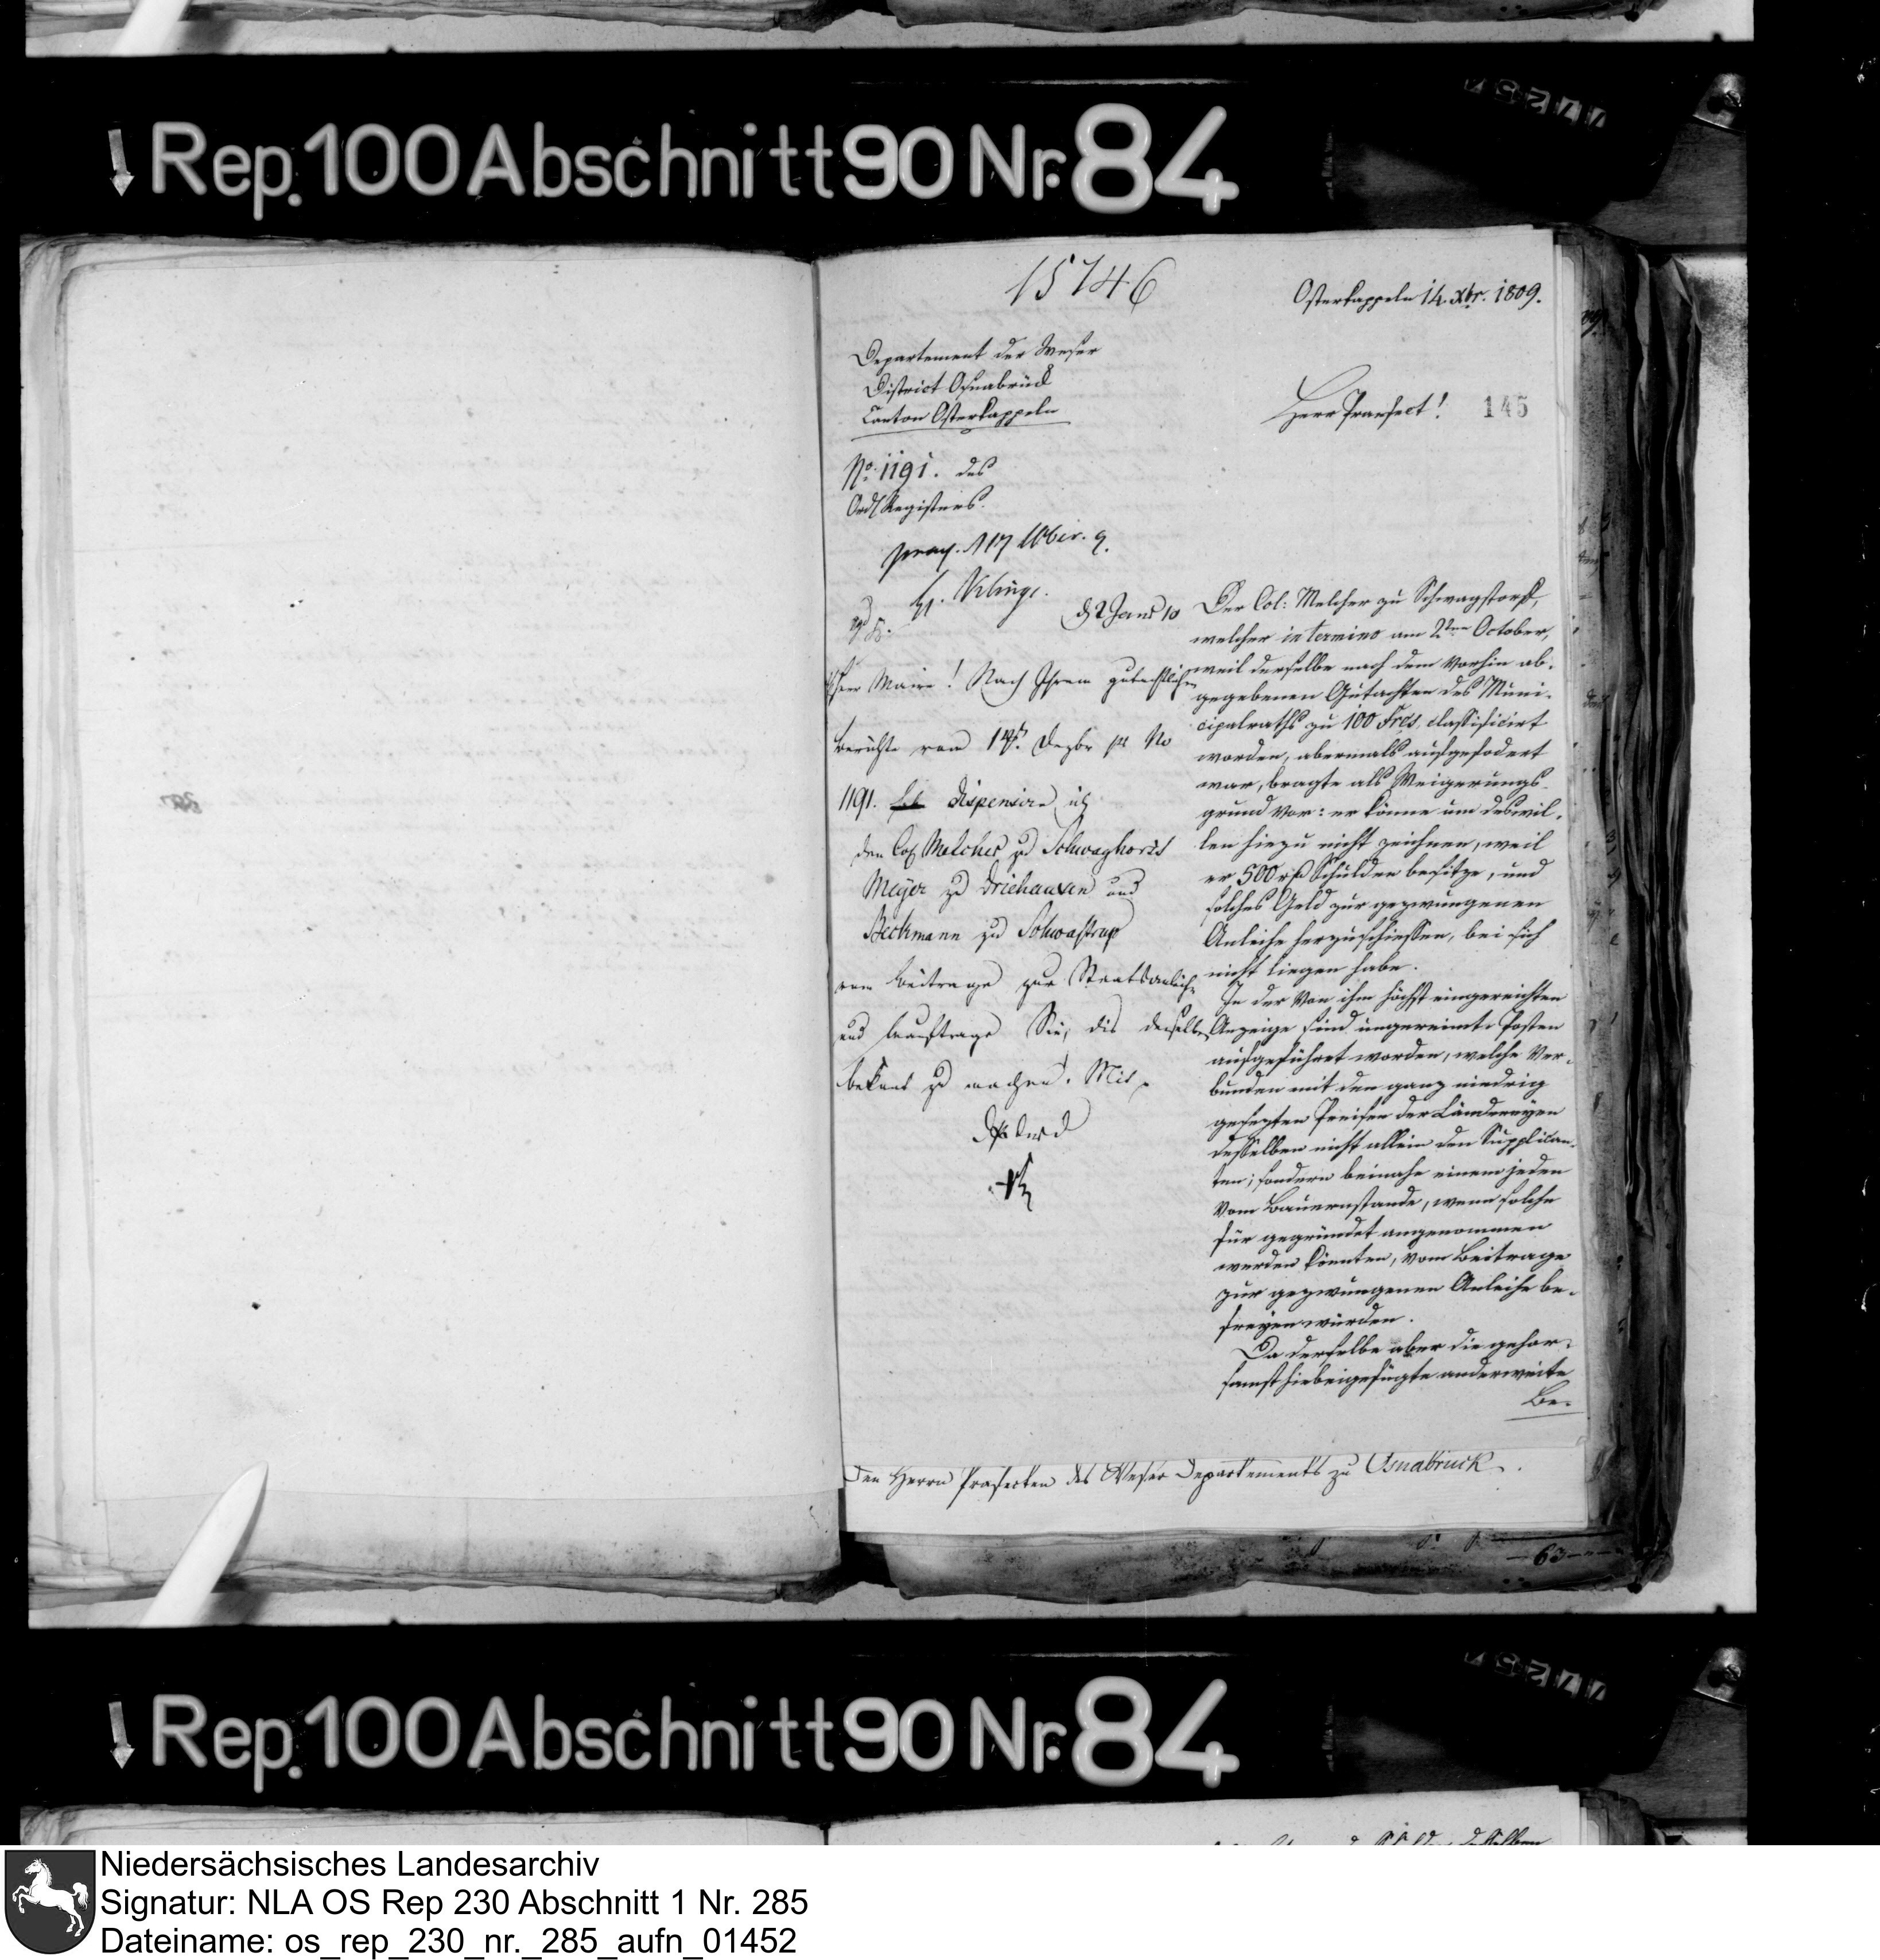 Rep. 100 Abschnitt 90 Nr. 84
15746
Osterkappeln 14. Xbr. 1809.
Departement der Weser
District Osnabrück
Canton Osterkappeln
Herr Praefect!
145
No. 1191. des
Ord/ Registers.
2 Janr 10
Herr Maire! Nach Ihrem gutachtlichen
Berichte vom 14t. Dezbr No
1191. dispensire ich
den Col Melcher zu
Meyer zu Driehausen und
Beckmann zu
vom Beitrage zur Staatsanleihe
und beauftrage Sie, dies denselben
bekant zu machen. Mit
Der Col: Melcher zu Schwagstorf,
welcher in termino am 2ten October,
weil derselbe nach dem vorhin ab-
gegebenen Gutachten des Muni-
cipalraths zu 100 Frcs. classificirt
worden, abermals aufgefodert
war, bragte als Weigerungs-
grund vor: er könne um deswil-
len hiezu nicht zeichnen, weil
er 500 rß Schulden besitze, und
solches Geld zur gezwungenen
Anleihe herzuschiessen, bei sich
nicht liegen habe.
In der von ihm höchst eingereichten
Anzeige sind ungereimte Posten
aufgeführet worden, welche ver-
bunden mit den ganz niedrig
gesezten Preisen der Ländereyen
desselben nicht allein den Supplican-
ten, sondern beinahe einem jeden
vom Bauernstande, wenn solche
für gegründet angenommen
werden könnten, vom Beitrage
zur gezwungenen Anleihe be-
freyen würden.
Da derselbe aber die gehor-
samst hiebeigefügte anderweite
Be-
Den Herrn Praefecten des Weser Departements zu Osnabrück.
63
Rep. 100 Abschnitt 90 Nr. 84
Niedersächsisches Landesarchiv
Signatur: NLA OS Rep 230 Abschnitt 1 Nr. 285
Dateiname: os_rep_230_nr._285_aufn_01452